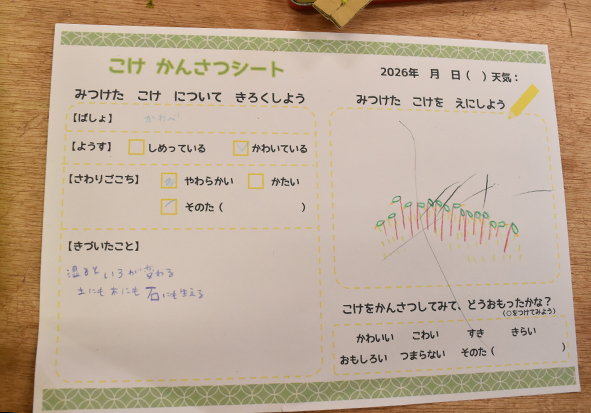 こけ かんさつシート
2026年　月　日（　）天気：
みつけた　こけ　について　きろくしよう
【ばしょ】 かわべ
【ようす】 しめっている かわいている
【さわりごこち】 やわらかい かたい
そのた（　　　）
【きづいたこと】
温度で いろが変わる
土にも 木にも 石にも生える
みつけた　こけを　えにしよう
こけをかんさつしてみて、どうおもったかな？
（○をつけてみよう）
かわいい こわい すき きらい
おもしろい つまらない そのた（　　　）